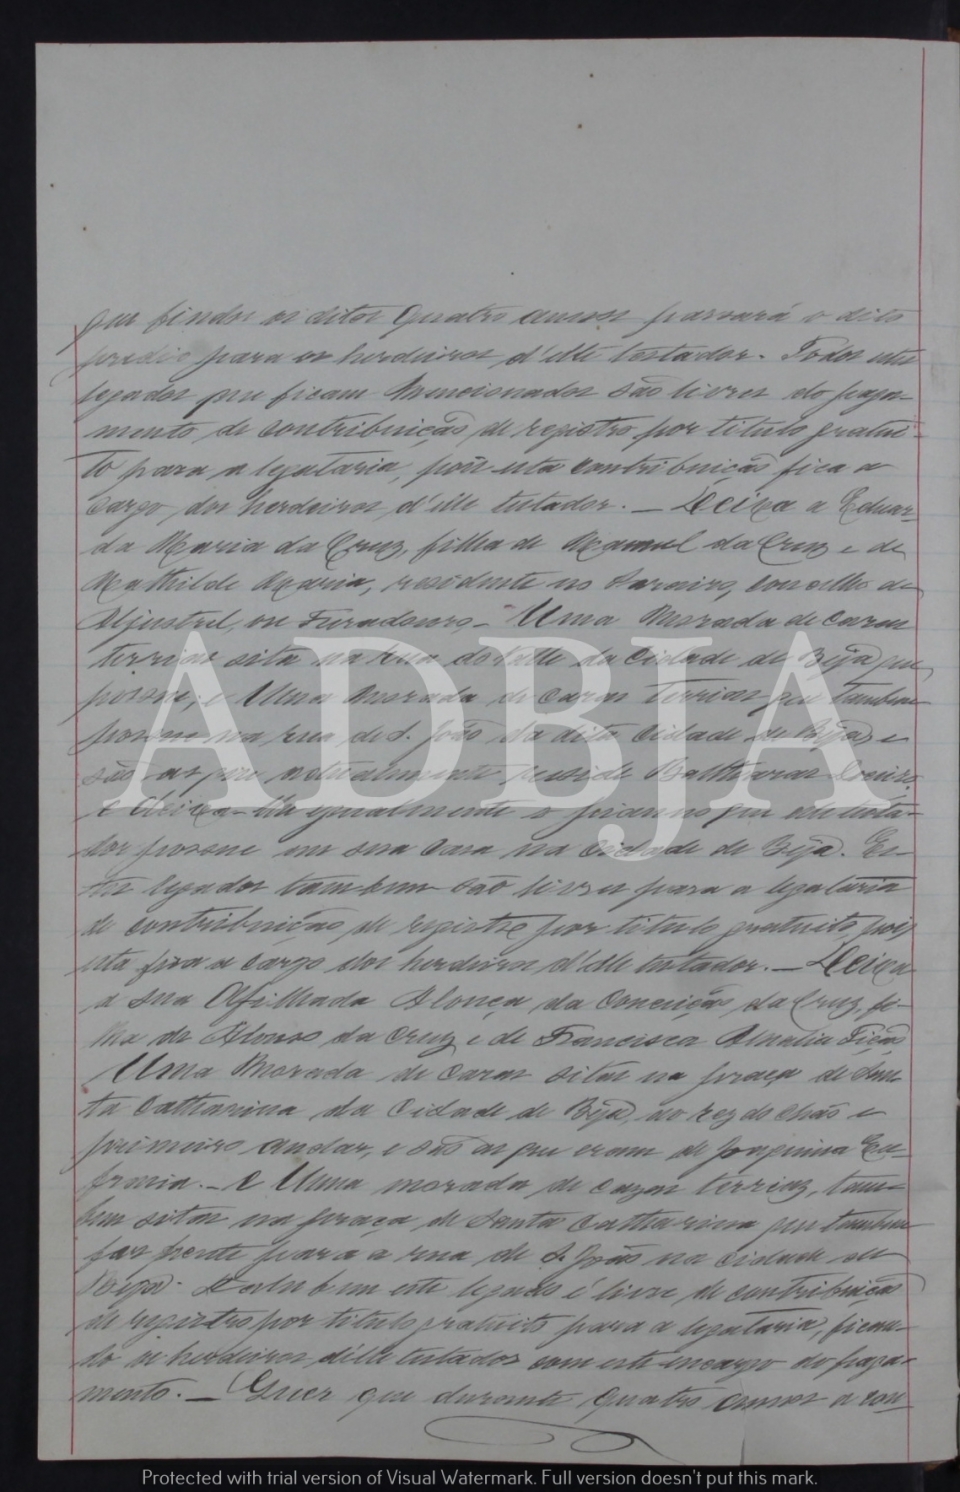 que findos os ditos quatro annos passará o dito
predio para os herdeiros d'elle testador. Todos estes
legados que ficam mencionados são livres do paga-
mento de contribuição de registro por titulo gratui-
to para a legataria, pois esta contribuição fica a
cargo dos herdeiros d'elle testador. — Deixa a Eduar-
da Maria da Cruz, filha de Manuel da Cruz e de
Mathilde Maria, residente no concelho de
Aljustrel, ou Furadouro — Uma morada de casas
terreas sita na rua do Valle da Cidade de Beja que
possue; e Uma morada de casas terreas que tambem
possue na rua de S. João da dita Cidade de Beja, e
são as que actualmente reside Balthazar
e deixa-lhe egualmente o que elle testa-
dor possue em sua casa na Cidade de Beja. Es-
tes legados tambem são livres para a legataria
de contribuição de registro por titulo gratuito, pois
esta fica a cargo dos herdeiros d'elle testador. — Deixa
a sua Afilhada da Conceição da Cruz, fi-
lha de da Cruz e de Francisca Amalia
Uma morada de casas sitas na praça de San-
ta Catharina da Cidade de Beja, no rez do chão e
primeiro andar, e são as que eram de Joaquina Eu-
femia. — E Uma morada de casas terreas, tam-
bem sitas na praça de Santa Catharina que tambem
faz frente para a rua de S. João na cidade de
Beja. Tambem este legado é livre de contribuição
de registro por titulo gratuito para a legataria, fican-
do os herdeiros d'elle testador com este encargo do paga-
mento. — Quer que durante quatro annos a con
ADBJA
Protected with trial version of Visual Watermark. Full version doesn't put this mark.